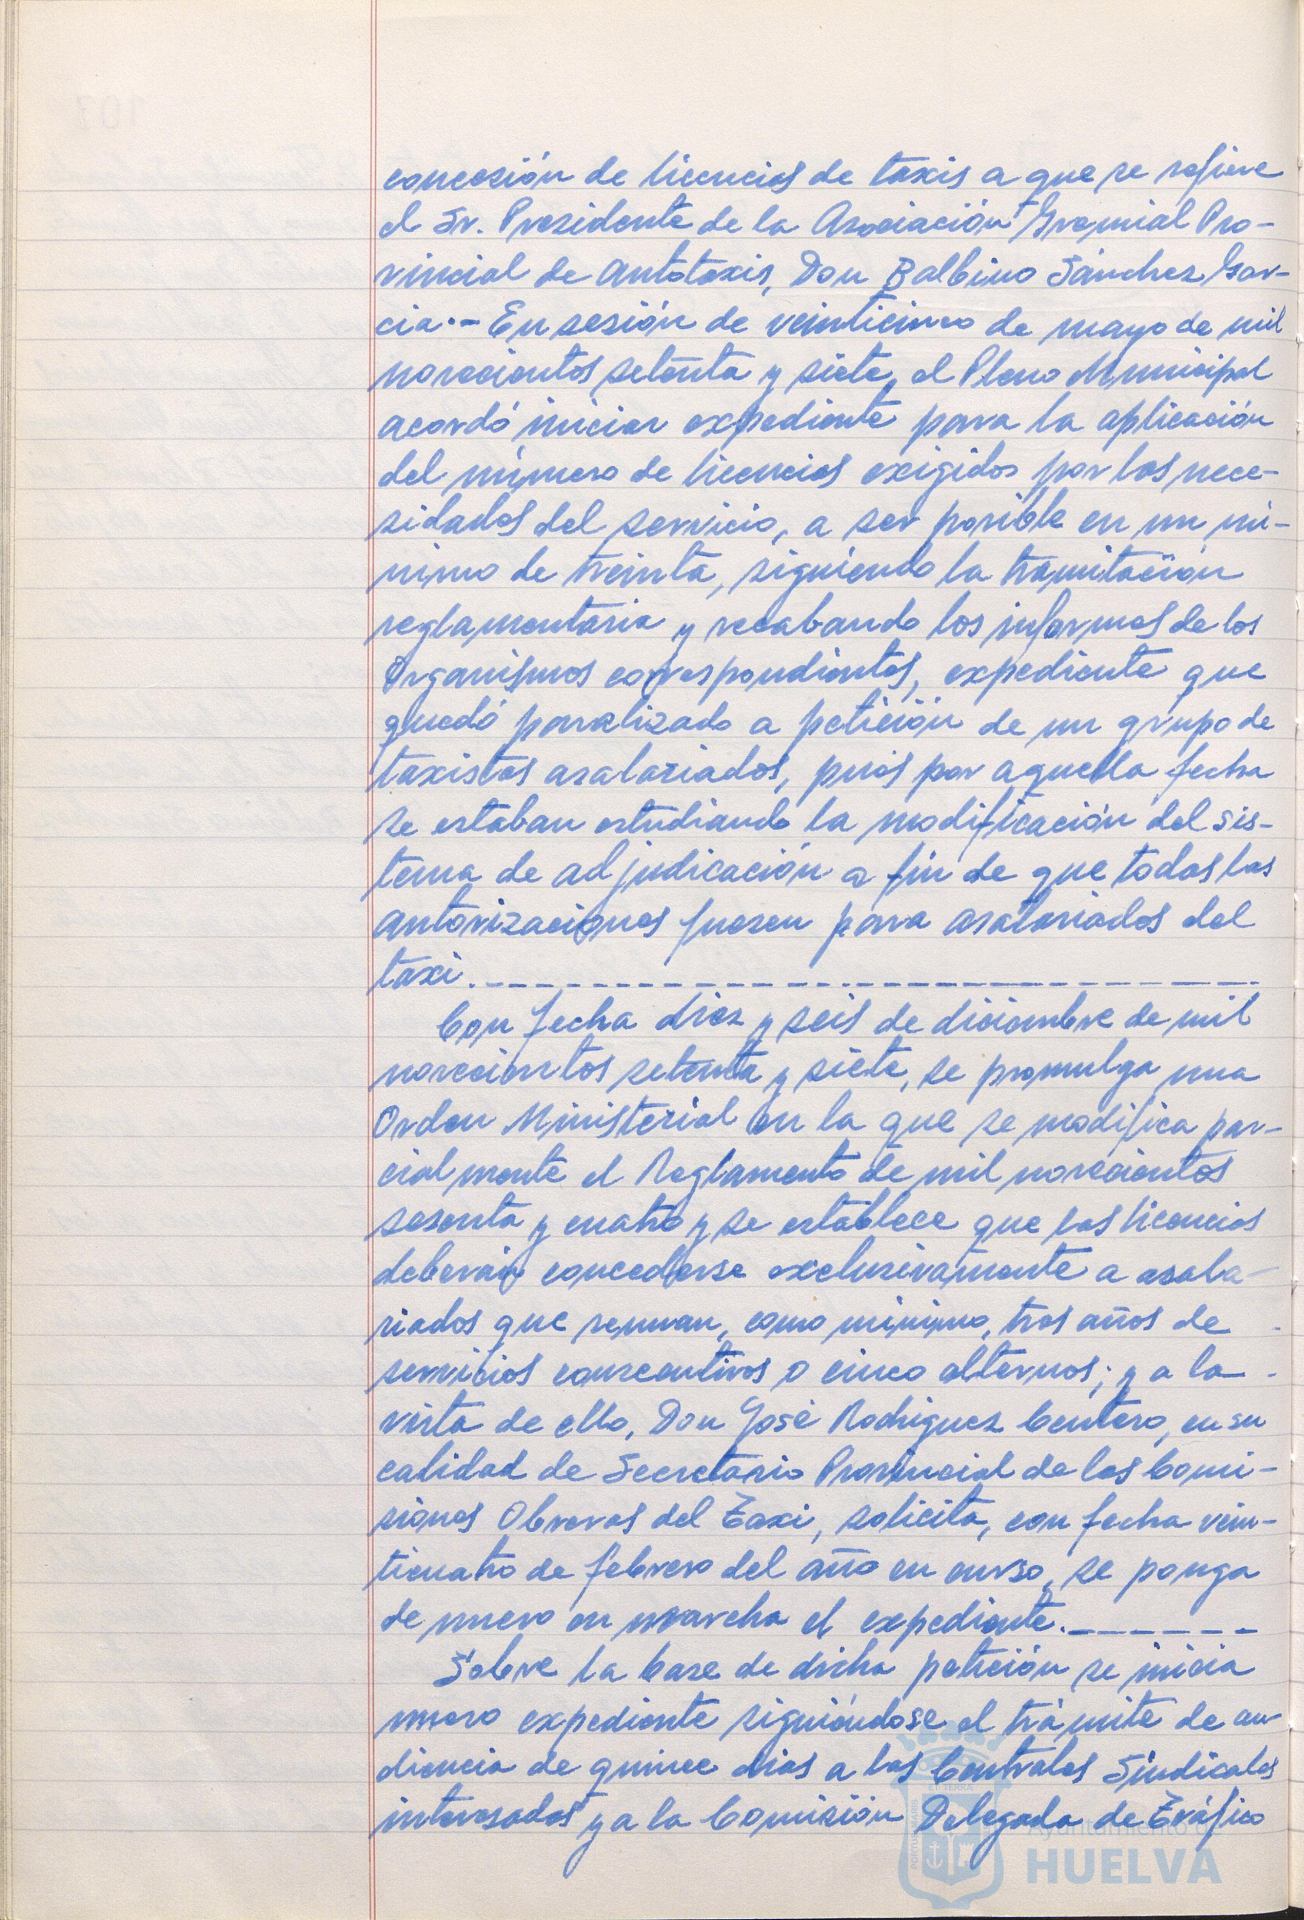 concesión de licencias de taxis a que se refiere
el Sr. Presidente de la Asociación Gremial Pro-
vincial de Autotaxis, Don Balbino Sánchez Gar-
cia.- En sesión de veinticinco de mayo de mil
novecientos setenta y siete, el Pleno Municipal
acordó iniciar expediente para la aplicación
del número de licencias exigidas por las nece-
sidades del servicio, a ser posible en un mí-
nimo de treinta, siguiendo la tramitación
reglamentaria y recabando los informes de los
Organismos correspondientes, expediente que
quedó paralizado a petición de un grupo de
taxistas asalariados, pués por aquella fecha
se estaban estudiando la modificación del sis-
tema de adjudicación a fin de que todas las
autorizaciones fuesen para asalariados del
taxi.
Con fecha diez y seis de diciembre de mil
novecientos setenta y siete, se promulga una
Orden Ministerial en la que se modifica par-
cialmente el Reglamento de mil novecientos
sesenta y cuatro y se establece que las licencias
deberán concederse exclusivamente a asala-
riados que reunan, como mínimo, tres años de
servicios consecutivos o cinco alternos; y a la
vista de ello, Don José Rodriguez Centero, en su
calidad de Secretario Provincial de las Comi-
siones Obreras del Taxi, solicita, con fecha vein-
ticuatro de febrero del año en curso, se ponga
de nuevo en marcha el expediente.
Sobre la base de dicha petición se inicia
nuevo expediente siguiéndose el trámite de au-
diencia de quince dias a las Centrales Sindicales
interesadas y a la Comisión Delegada de Tráfico
Ayuntamiento de
HUELVA